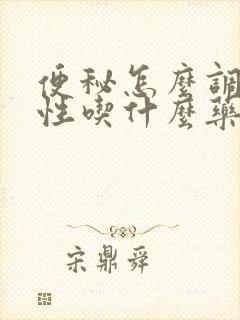 便秘怎麼調
性喫什麼藥
宋鼎舜